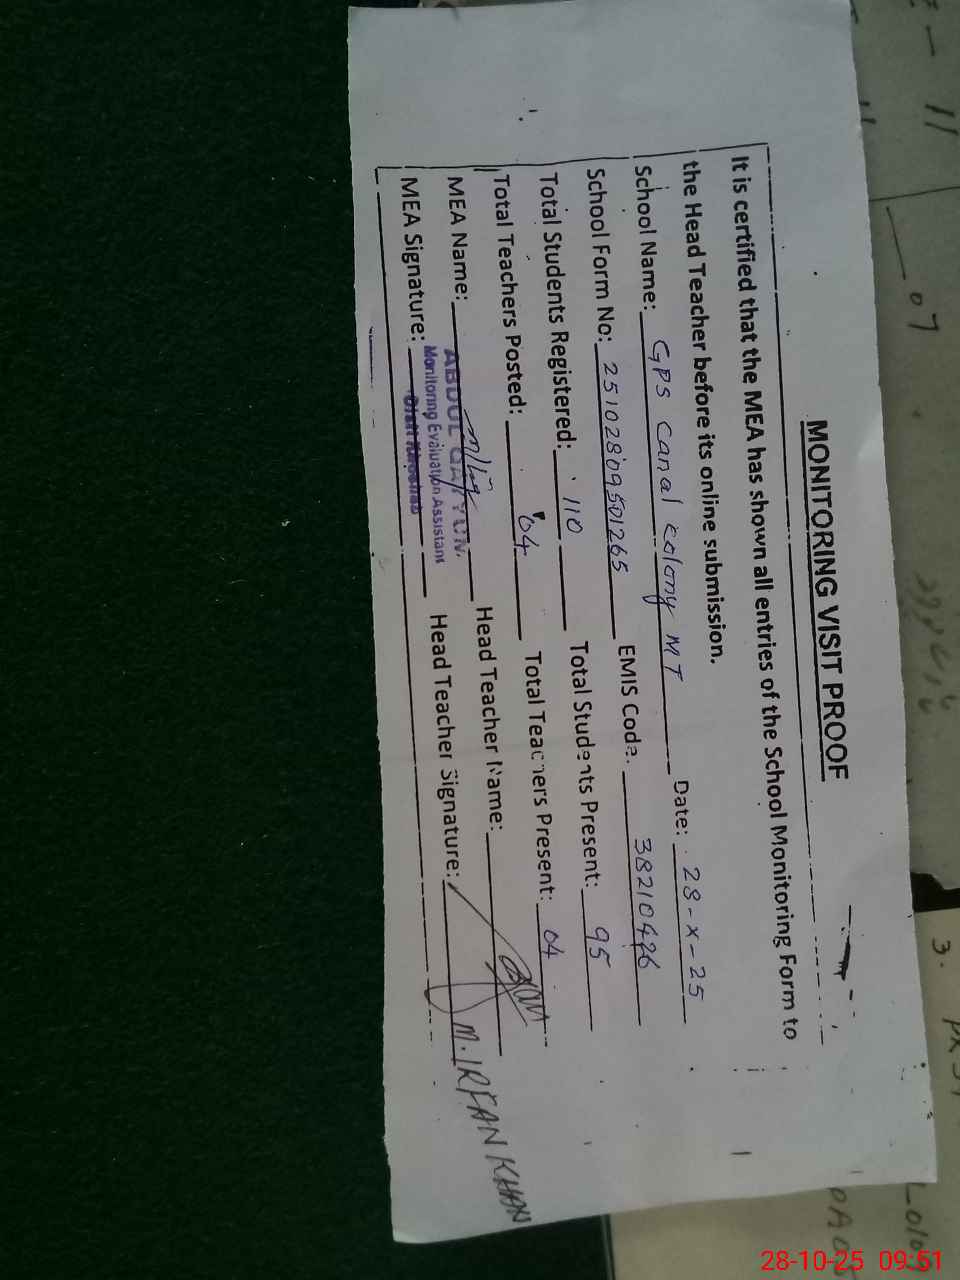 MONITORING VISIT PROOF
It is certified that the MEA has shown all entries of the School Monitoring Form to
the Head Teacher before its online submission.
School Name: GPS Canal colony MT Date: 28-X-25
School Form No: 25102809501265 EMIS Code: 38210426
Total Students Registered: 110 Total Students Present: 95
Total Teachers Posted: 04 Total Teachers Present: 04
MEA Name: ABDUL QAYYUM. Head Teacher Name:
Monitoring Evaluation Assistant
MEA Signature: Head Teacher Signature:
M. IRFAN KHAN
11
07
3.
28-10-25 09:51